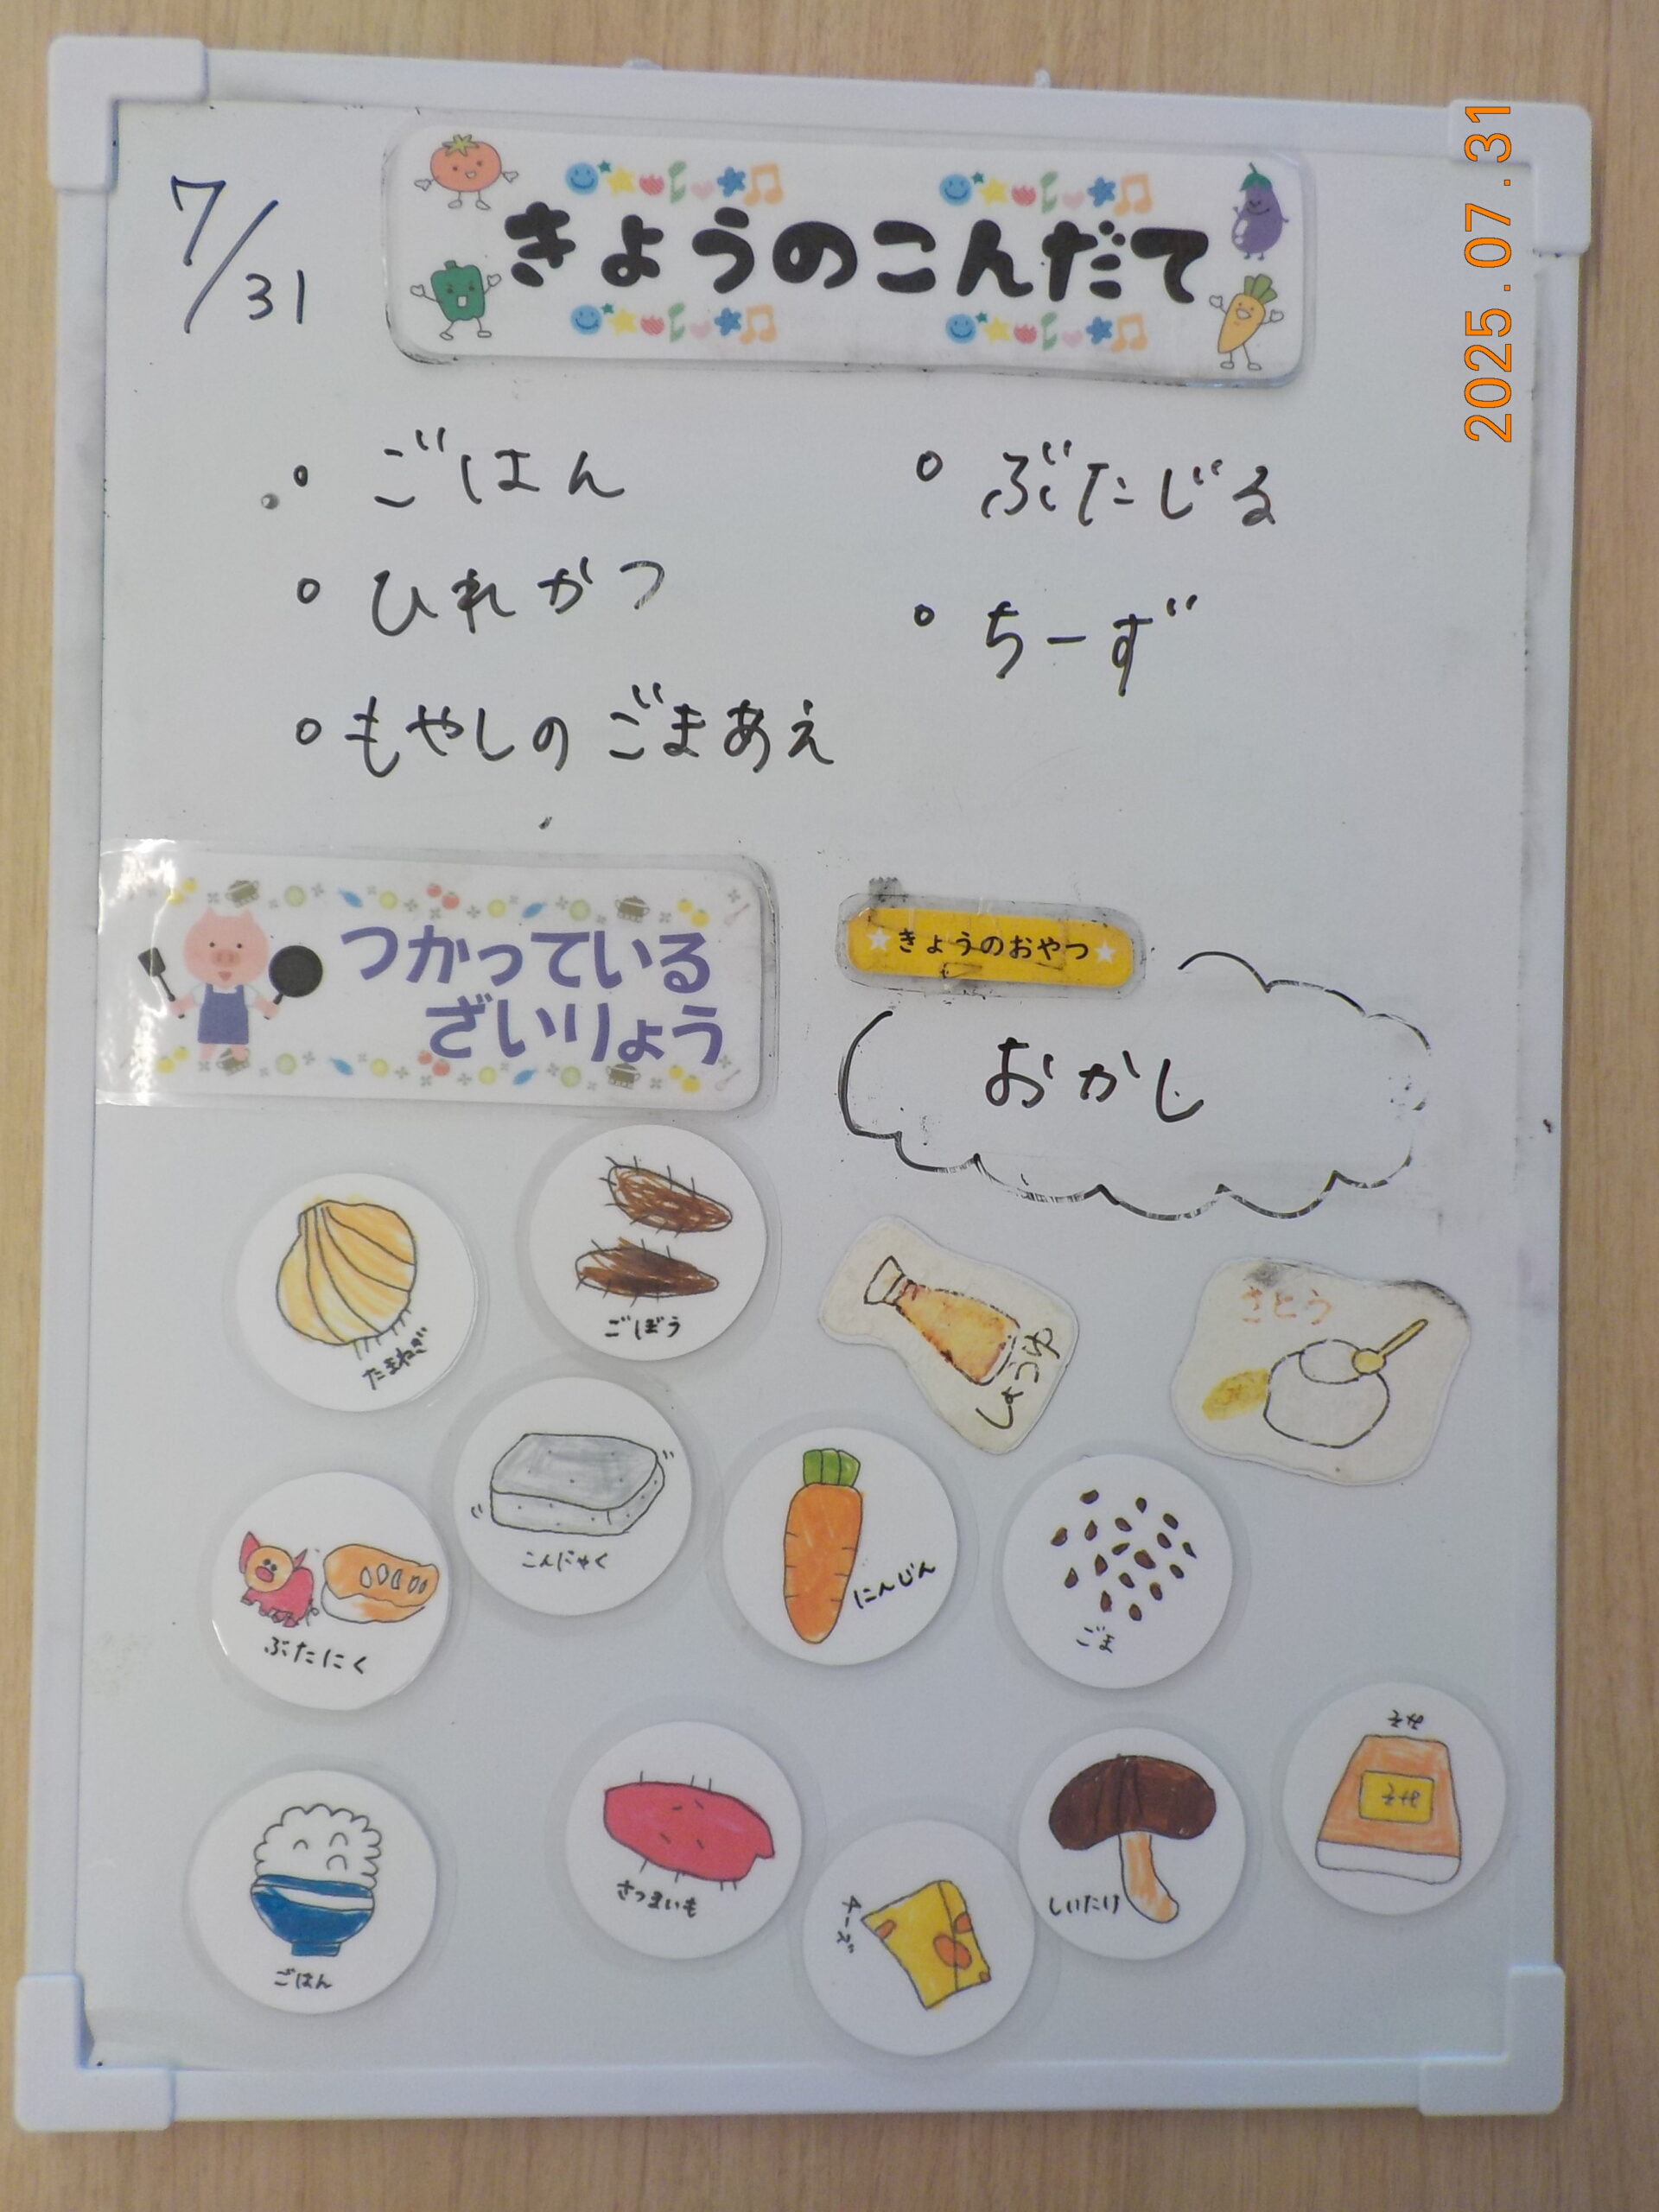 7/31
きょうのこんだて
2025.07.31
。ごはん
。ひれかつ
。もやしの ごまあえ
。ぶたじる
。ちーず
つかっている
ざいりょう
きょうのおやつ
おかし
たまねぎ
ごぼう
しょうゆ
さとう
ぶたにく
こんにゃく
にんじん
ごま
ごはん
さつまいも
チーズ
しいたけ
みそ
みそ